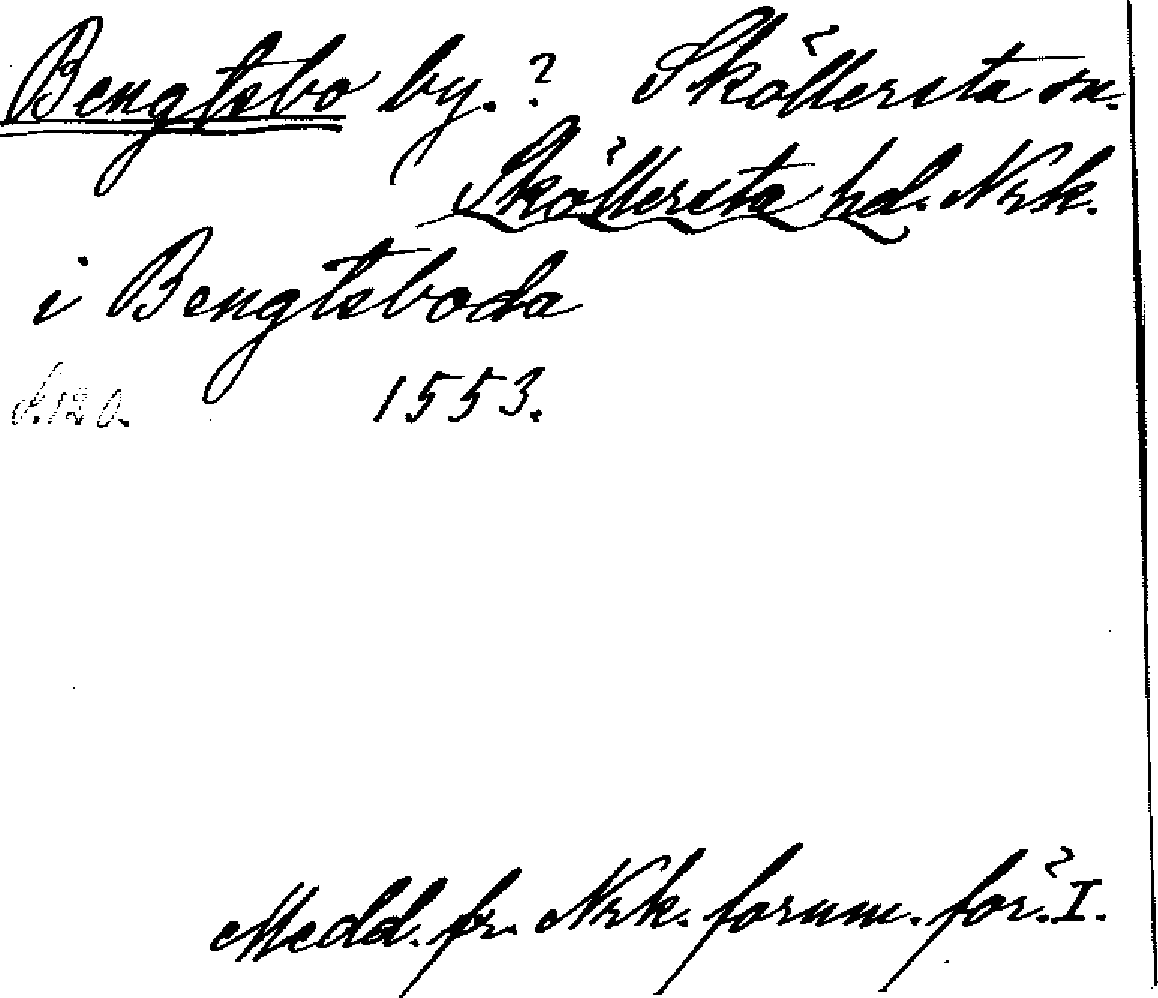 Bengtsbo by.? Sköllersta sn.
Sköllersta hd. Nrk.
i Bengtsboda
S. 120.
1553.
Medd. fr. Nrk. fornm. för. I.